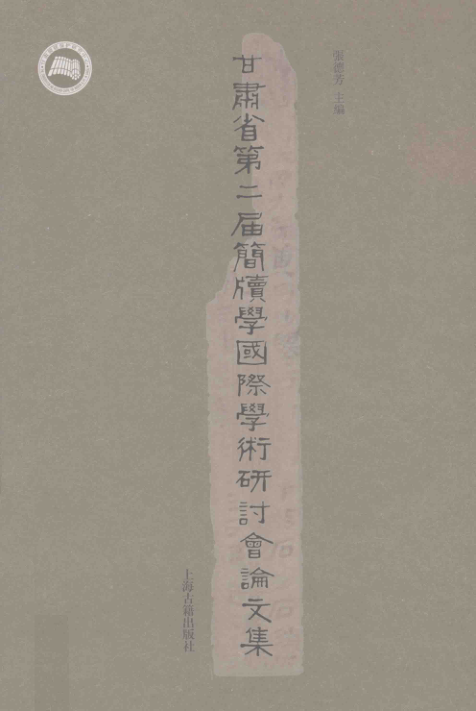 張德芳 主編
甘肅省第二届簡牘學國際學術研討會論文集
上海古籍出版社